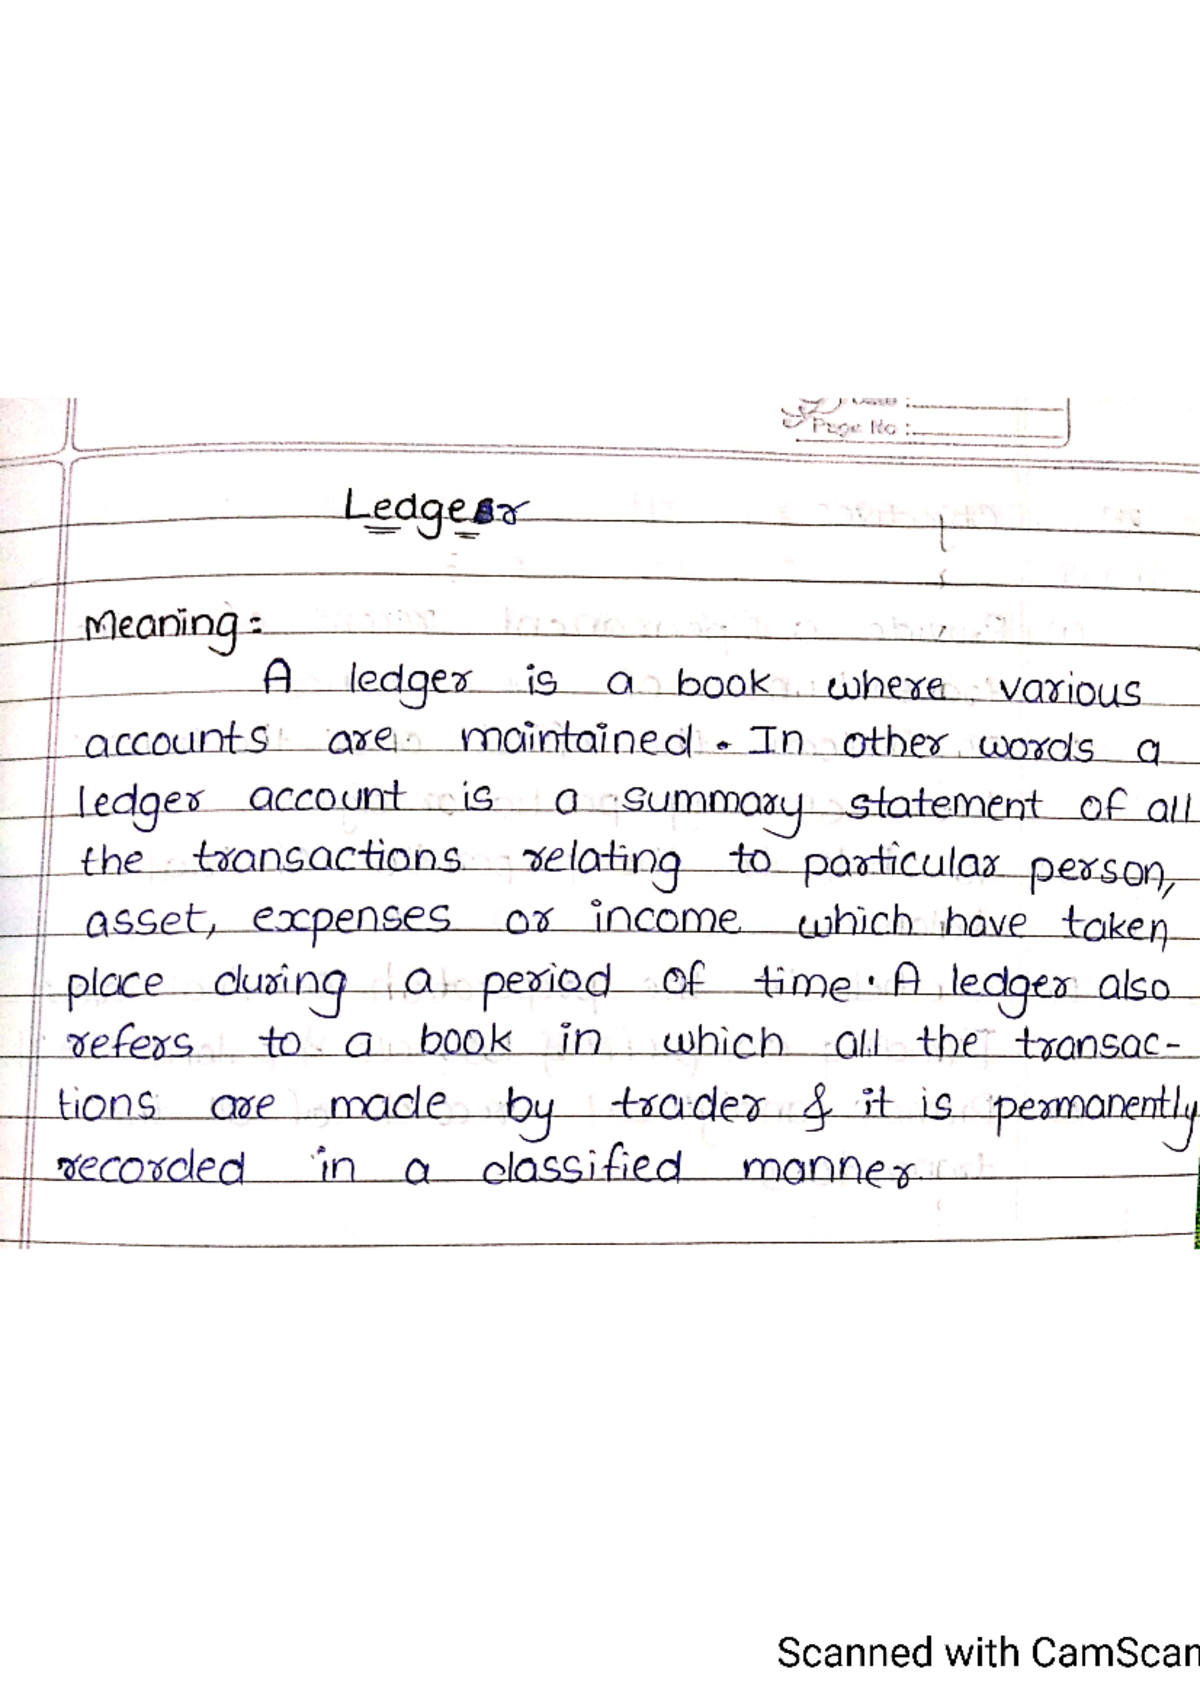 Page No :
Ledger
Meaning :
A ledger is a book where various
accounts are maintained. In other words a
ledger account is a summary statement of all
the transactions relating to particular person,
asset, expenses or income which have taken
place during a period of time. A ledger also
refers to a book in which all the transac-
tions are made by trader & it is permanently
recorded in a classified manner
Scanned with CamScan